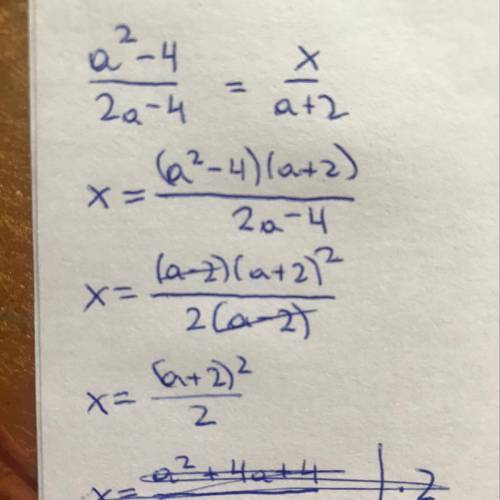 a²-4 / 2a-4 = x / a+2
x = (a²-4)(a+2) / 2a-4
x = (a-2)(a+2)² / 2(a-2)
x = (a+2)² / 2
x = a²+4a+4 | · 2